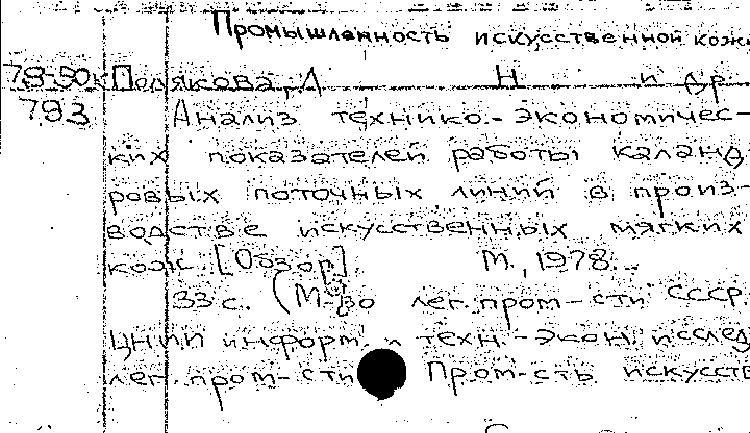 Промышленность искусственной кожи
78-50к Полякова, Л Н и др
783 Анализ технико-экономичес-
ких показателей работы каланд
ровых поточных линий в произ-
водстве искусственных мягких
кож [Обзор]. М., 1978.
33 с. (М-во лег. пром-сти СССР.
ЦНИИ информ. и техн.-экон. исслед
лег. пром-сти Пром-сть искусств